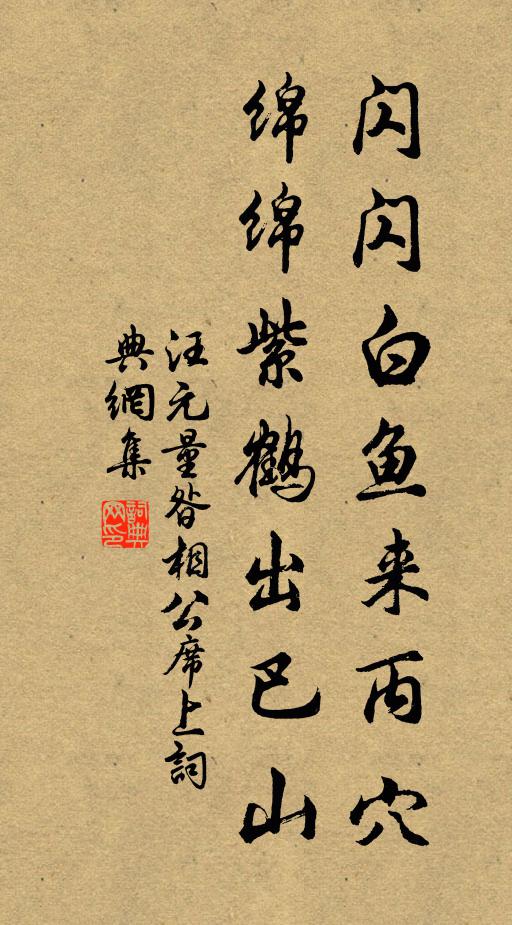 闪闪白鱼来丙穴
绵绵紫鹤出巴山
汪元量昝相公席上詞
典網集
詞典
网印